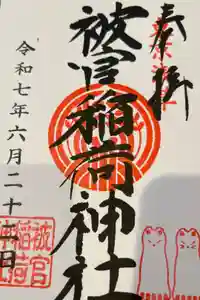 奉拝
被官稲荷神社
令和七年六月二十
被官
稲荷